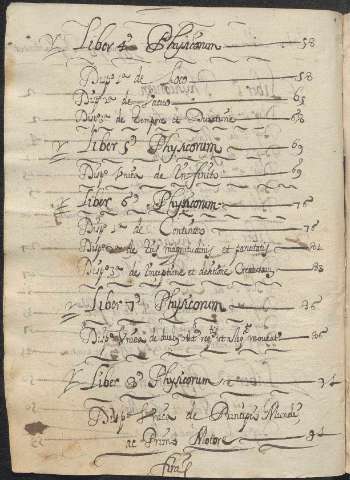 Liber 4º Physicorum 58
Disp. 1ª de Loco 58
Disp. 2ª de Vacuo 61
Disp. 3ª de Tempore et Duratione
Liber 5º Physicorum 69
Disp. Unica de Infinito 69
Liber 6º Physicorum 76
Disp. 1ª de Continuo 76
Disp. 2ª de magnitudinis et
Disp. 3ª de Inceptione et
Liber 7º Physicorum 86
Disp. Unica de
Liber 8º Physicorum 94
Disp. Unica de Principio Mundi
ac Primo Motore 94
Finis